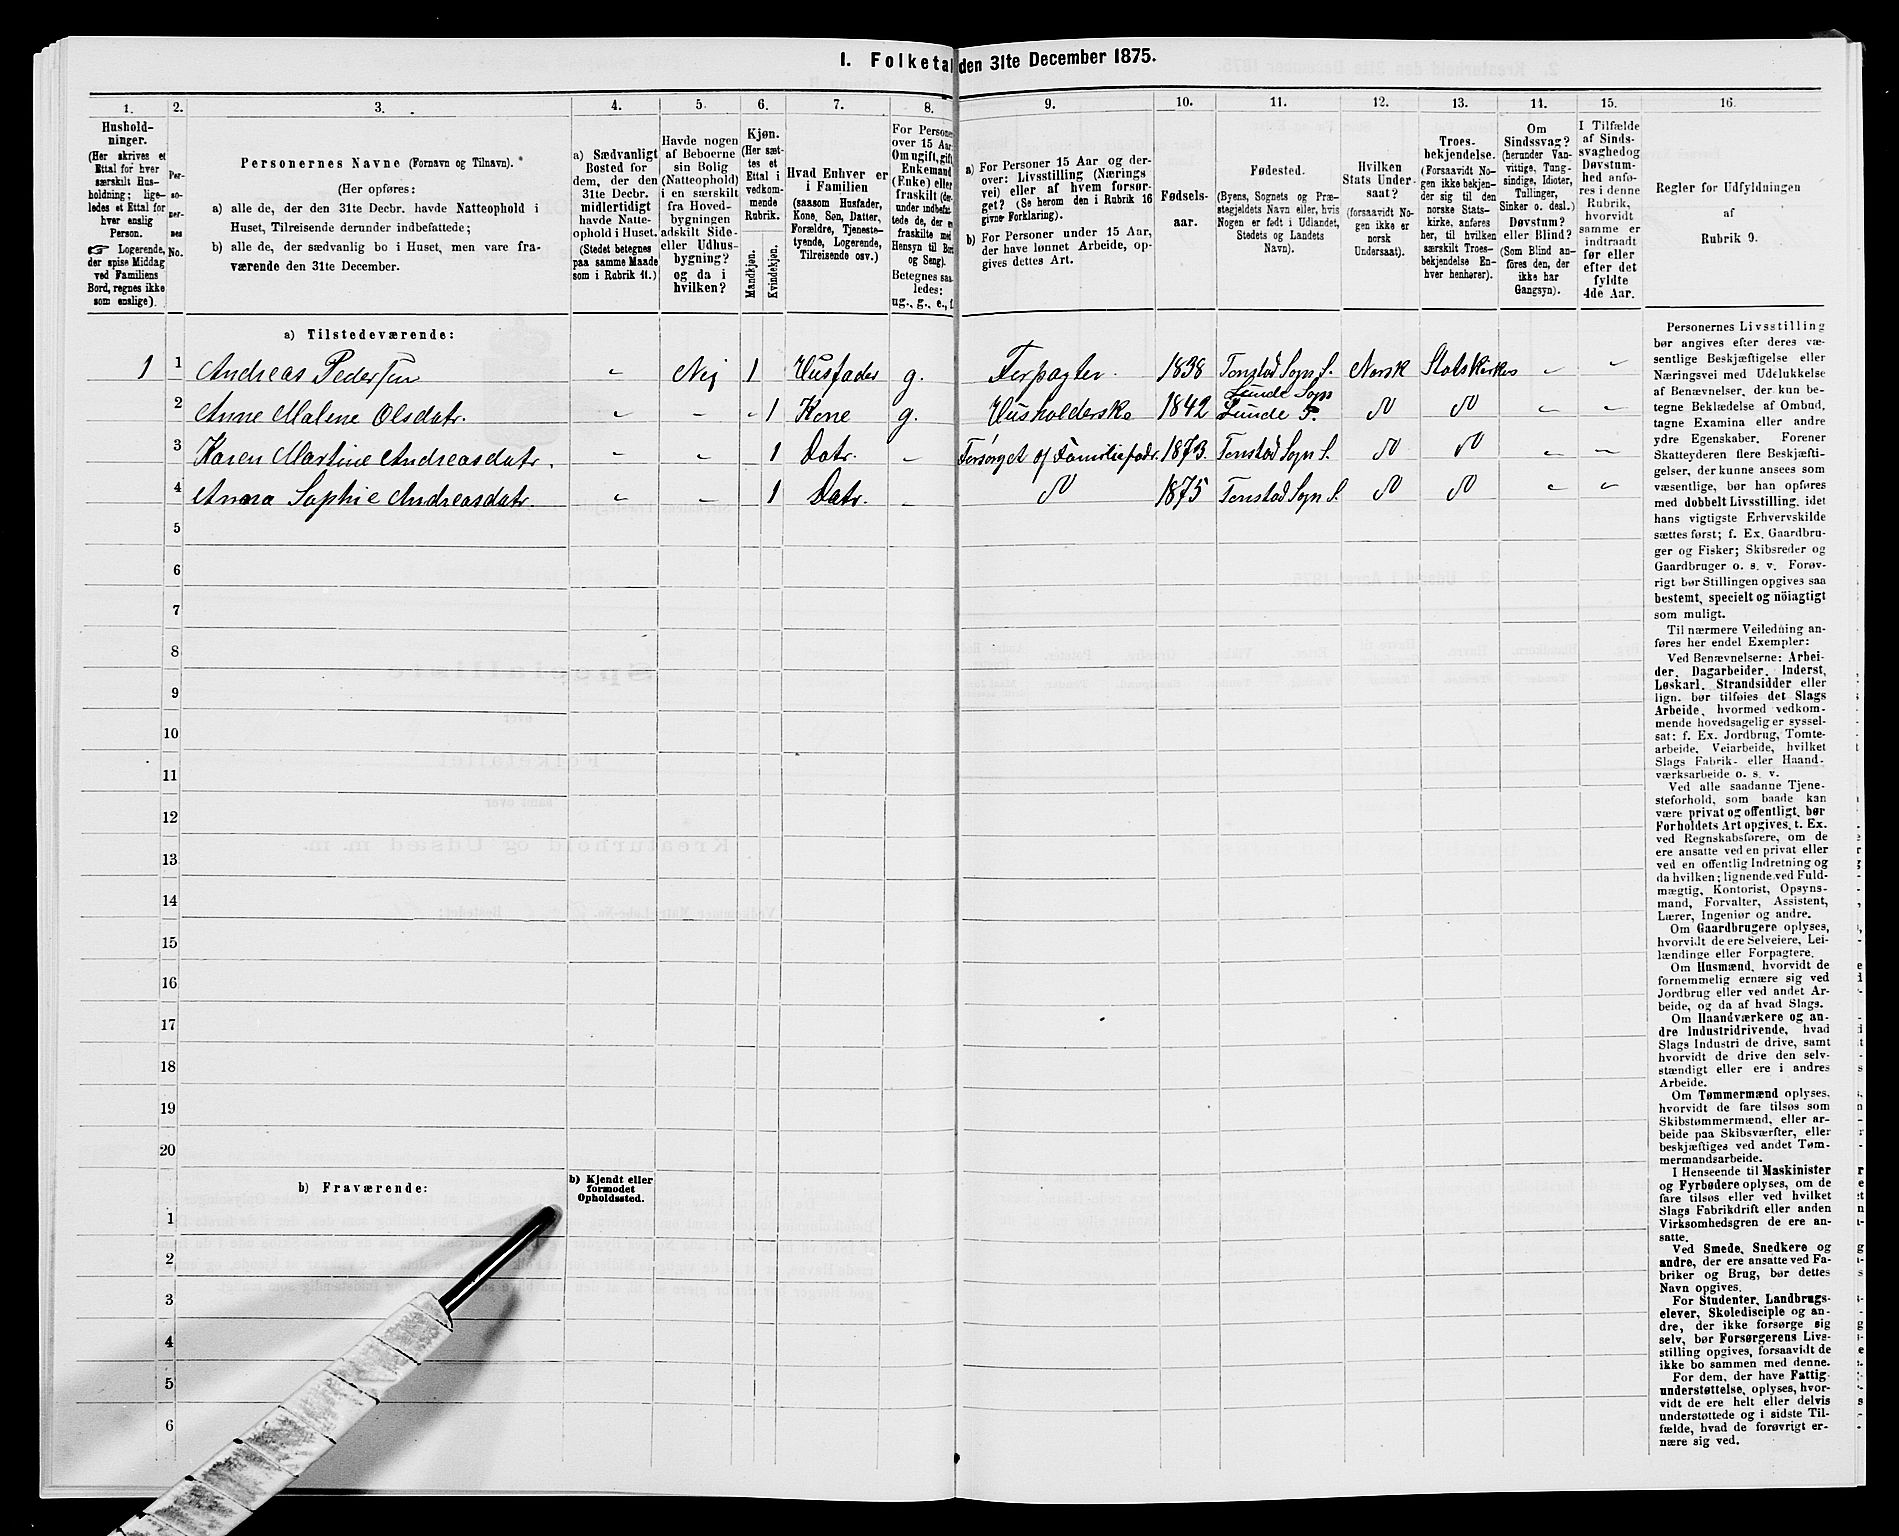 I. Folketal den 31te December 1875.
1. 2. 3. 4. 5. 6. 7. 8. 9. 10. 11. 12. 13. 14. 15. 16.
Hushold-
ninger.
(Her skrives et
Ettal for hver
særskilt Hus-
holdning; lige-
ledes et Ettal for
hver enslig
Person.
☞ Logerende,
der spise Middag
ved Familiens
Bord, regnes ikke
som enslige).
Per-
so-
ner-
nes
No.
Personernes Navne (Fornavn og Tilnavn).
(Her opføres:
a) alle de, der den 31te Decbr. havde Natteophold i
Huset, Tilreisende derunder indbefattede;
b) alle de, der sædvanlig bo i Huset, men vare fra-
værende den 31te December.
a) Sædvanligt
Bosted for
dem, der den
31te Decbr.
midlertidigt
havde Natte-
ophold i Huset.
(Stedet betegnes
paa samme Maade
som i Rubrik 11.)
Havde nogen
af Beboerne
sin Bolig
(Natteophold)
i en særskilt
fra Hoved-
bygningen
adskilt Side-
eller Udhus-
bygning?
og da i
hvilken?
Kjøn.
(Her sæt-
tes et
Ettal i
vedkom-
mende
Rubrik.
Mandkjøn.
Kvindekjøn.
Hvad Enhver er
i Familien
(saasom Husfader,
Kone, Søn, Datter,
Forældre, Tjeneste-
tyende, Logerende,
Tilreisende osv.)
For Personer
over 15 Aar:
Om ugift, gift,
Enkemand
(Enke) eller
fraskilt (der-
under indbefat-
tede de, der er
fraskilte med
Hensyn til Bord
og Seng).
Betegnes saa-
ledes:
ug., g., e., f.
a) For Personer 15 Aar og der-
over: Livsstilling (Nærings
vei) eller af hvem forsør-
get? (Se herom den i Rubrik 16
givne Forklaring).
b) For Personer under 15 Aar,
der have lønnet Arbeide, op-
gives dettes Art.
Fødsels-
aar.
Fødested.
(Byens, Sognets og Præ-
stegjeldets Navn eller, hvis
Nogen er født i Udlandet,
Stedets og Landets
Navn).
Hvilken
Stats Under-
saat?
(forsaavidt No-
gen ikke er
norsk
Undersaat).
Troes-
bekjendelse.
(Forsaavidt No-
gen ikke bekjen-
der sig til den
norske Stats-
kirke, anføres
her, til hvilken
særskilt Troes-
bekjendelse En-
hver henhører).
Om
Sindssvag?
(herunder Van-
vittige, Tung-
sindige, Idioter,
Tullinger,
Sinker o. desl.)
Døvstum?
eller Blind?
(Som Blind an-
føres den, der
ikke har
Gangsyn).
I Tilfælde
af Sinds-
svaghed og
Døvstum-
hed anfø-
res i denne
Rubrik,
hvorvidt
samme er
indtraadt
før eller
efter det
fyldte
4de Aar.
Regler for Udfyldningen
af
Rubrik 9.
a) Tilstedeværende:
1 1 Andreas Pedersen - Nej 1 Husfader g. Forpagter. 1838 Tonstad Sogn S. Norsk Statskirken - -
Lunde Sogn
2 Anne Malene Olsdatr. - - - 1 Kone g. Husholderske 1842 Lunde P. - -
3 Karen Martine Andreasdatr. - - 1 Datr. - Forsørget af Familiefadr. 1873. Tonstad Sogn S. - -
4 Anna Sophie Andreasdatr. - - 1 Datr. - 1875 Tonstad Sogn S. - -
5
6
7
8
9
10
11
12
13
14
15
16
17
18
19
20
b) Fraværende:
b) Kjendt eller
formodet
Opholdssted.
1
2
3
4
5
6
Personernes Livsstilling
bør angives efter deres væ-
sentlige Beskjæftigelse eller
Næringsvei med Udelukkelse
af Benævnelser, der kun be-
tegne Beklædelse af Ombud,
tagne Examina eller andre
ydre Egenskaber. Forener
Skatteyderen flere Beskjæfti-
gelser, der kunne ansees som
væsentlige, bør han opføres
med dobbelt Livsstilling, idet
hans vigtigste Erhvervskilde
sættes først; f. Ex. Gaardbru-
ger og Fisker; Skibsreder og
Gaardbruger o. s. v. Forøv-
rigt bør Stillingen opgives saa
bestemt, specielt og nöiagtigt
som muligt.
Til nærmere Veiledning an-
føres her endel Exempler:
Ved Benævnelserne: Arbei-
der, Dagarbeider, Inderst,
Løskarl, Strandsidder eller
lign. bør tilføies det Slags
Arbeide, hvormed vedkom-
mende hovedsagelig er syssel-
sat; f. Ex. Jordbrug, Tomte-
arbeide, Veiarbeide, hvilket
Slags Fabrik- eller Haand-
værksarbeide o. s. v.
Ved alle saadanne Tjene-
steforhold, som baade kan
være privat og offentligt, bør
Forholdets Art opgives, t. Ex.
ved Regnskabsførere, om de
ere ansatte ved en privat eller
ved en offentlig Indretning og
da hvilken; lignende ved Fuld-
mægtig, Kontorist, Opsyns-
mand, Forvalter, Assistent,
Lærer, Ingeniør og andre.
Om Gaardbrugere oplyses,
hvorvidt de ere Selveiere, Lei-
lændinge eller Forpagtere.
Om Husmænd, hvorvidt de
fornemmelig ernære sig ved
Jordbrug eller ved andet Ar-
beide, og da af hvad Slags.
Om Haandværkere og an-
dre Industridrivende, hvad
Slags Industri de drive, samt
hvorvidt de drive den selv-
stændigt eller ere i andres
Arbeide.
Om Tømmermænd oplyses,
hvorvidt de fare tilsøs som
Skibstømmermænd, eller ar-
beide paa Skibsværfter, eller
beskjæftiges ved andet Tøm-
mermandsarbeide.
I Henseende til Maskinister
og Fyrbødere oplyses, om de
fare tilsøs eller ved hvilket
Slags Fabrikdrift eller anden
Virksomhedsgren de ere an-
satte.
Ved Smede, Snedkere og
andre, der ere ansatte ved Fa-
briker og Brug, bør dettes
Navn opgives.
For Studenter, Landbrugs-
elever, Skoledisciple og an-
dre, der ikke forsørge sig
selv, bør Forsørgerens Livs-
stilling opgives, forsaavidt de
ikke bo sammen med denne.
For dem, der have Fattig-
understøttelse, oplyses, hvor-
vidt de ere helt eller delvis
understøttede og i sidste Til-
fælde, hvad de forøvrigt er-
nære sig ved.